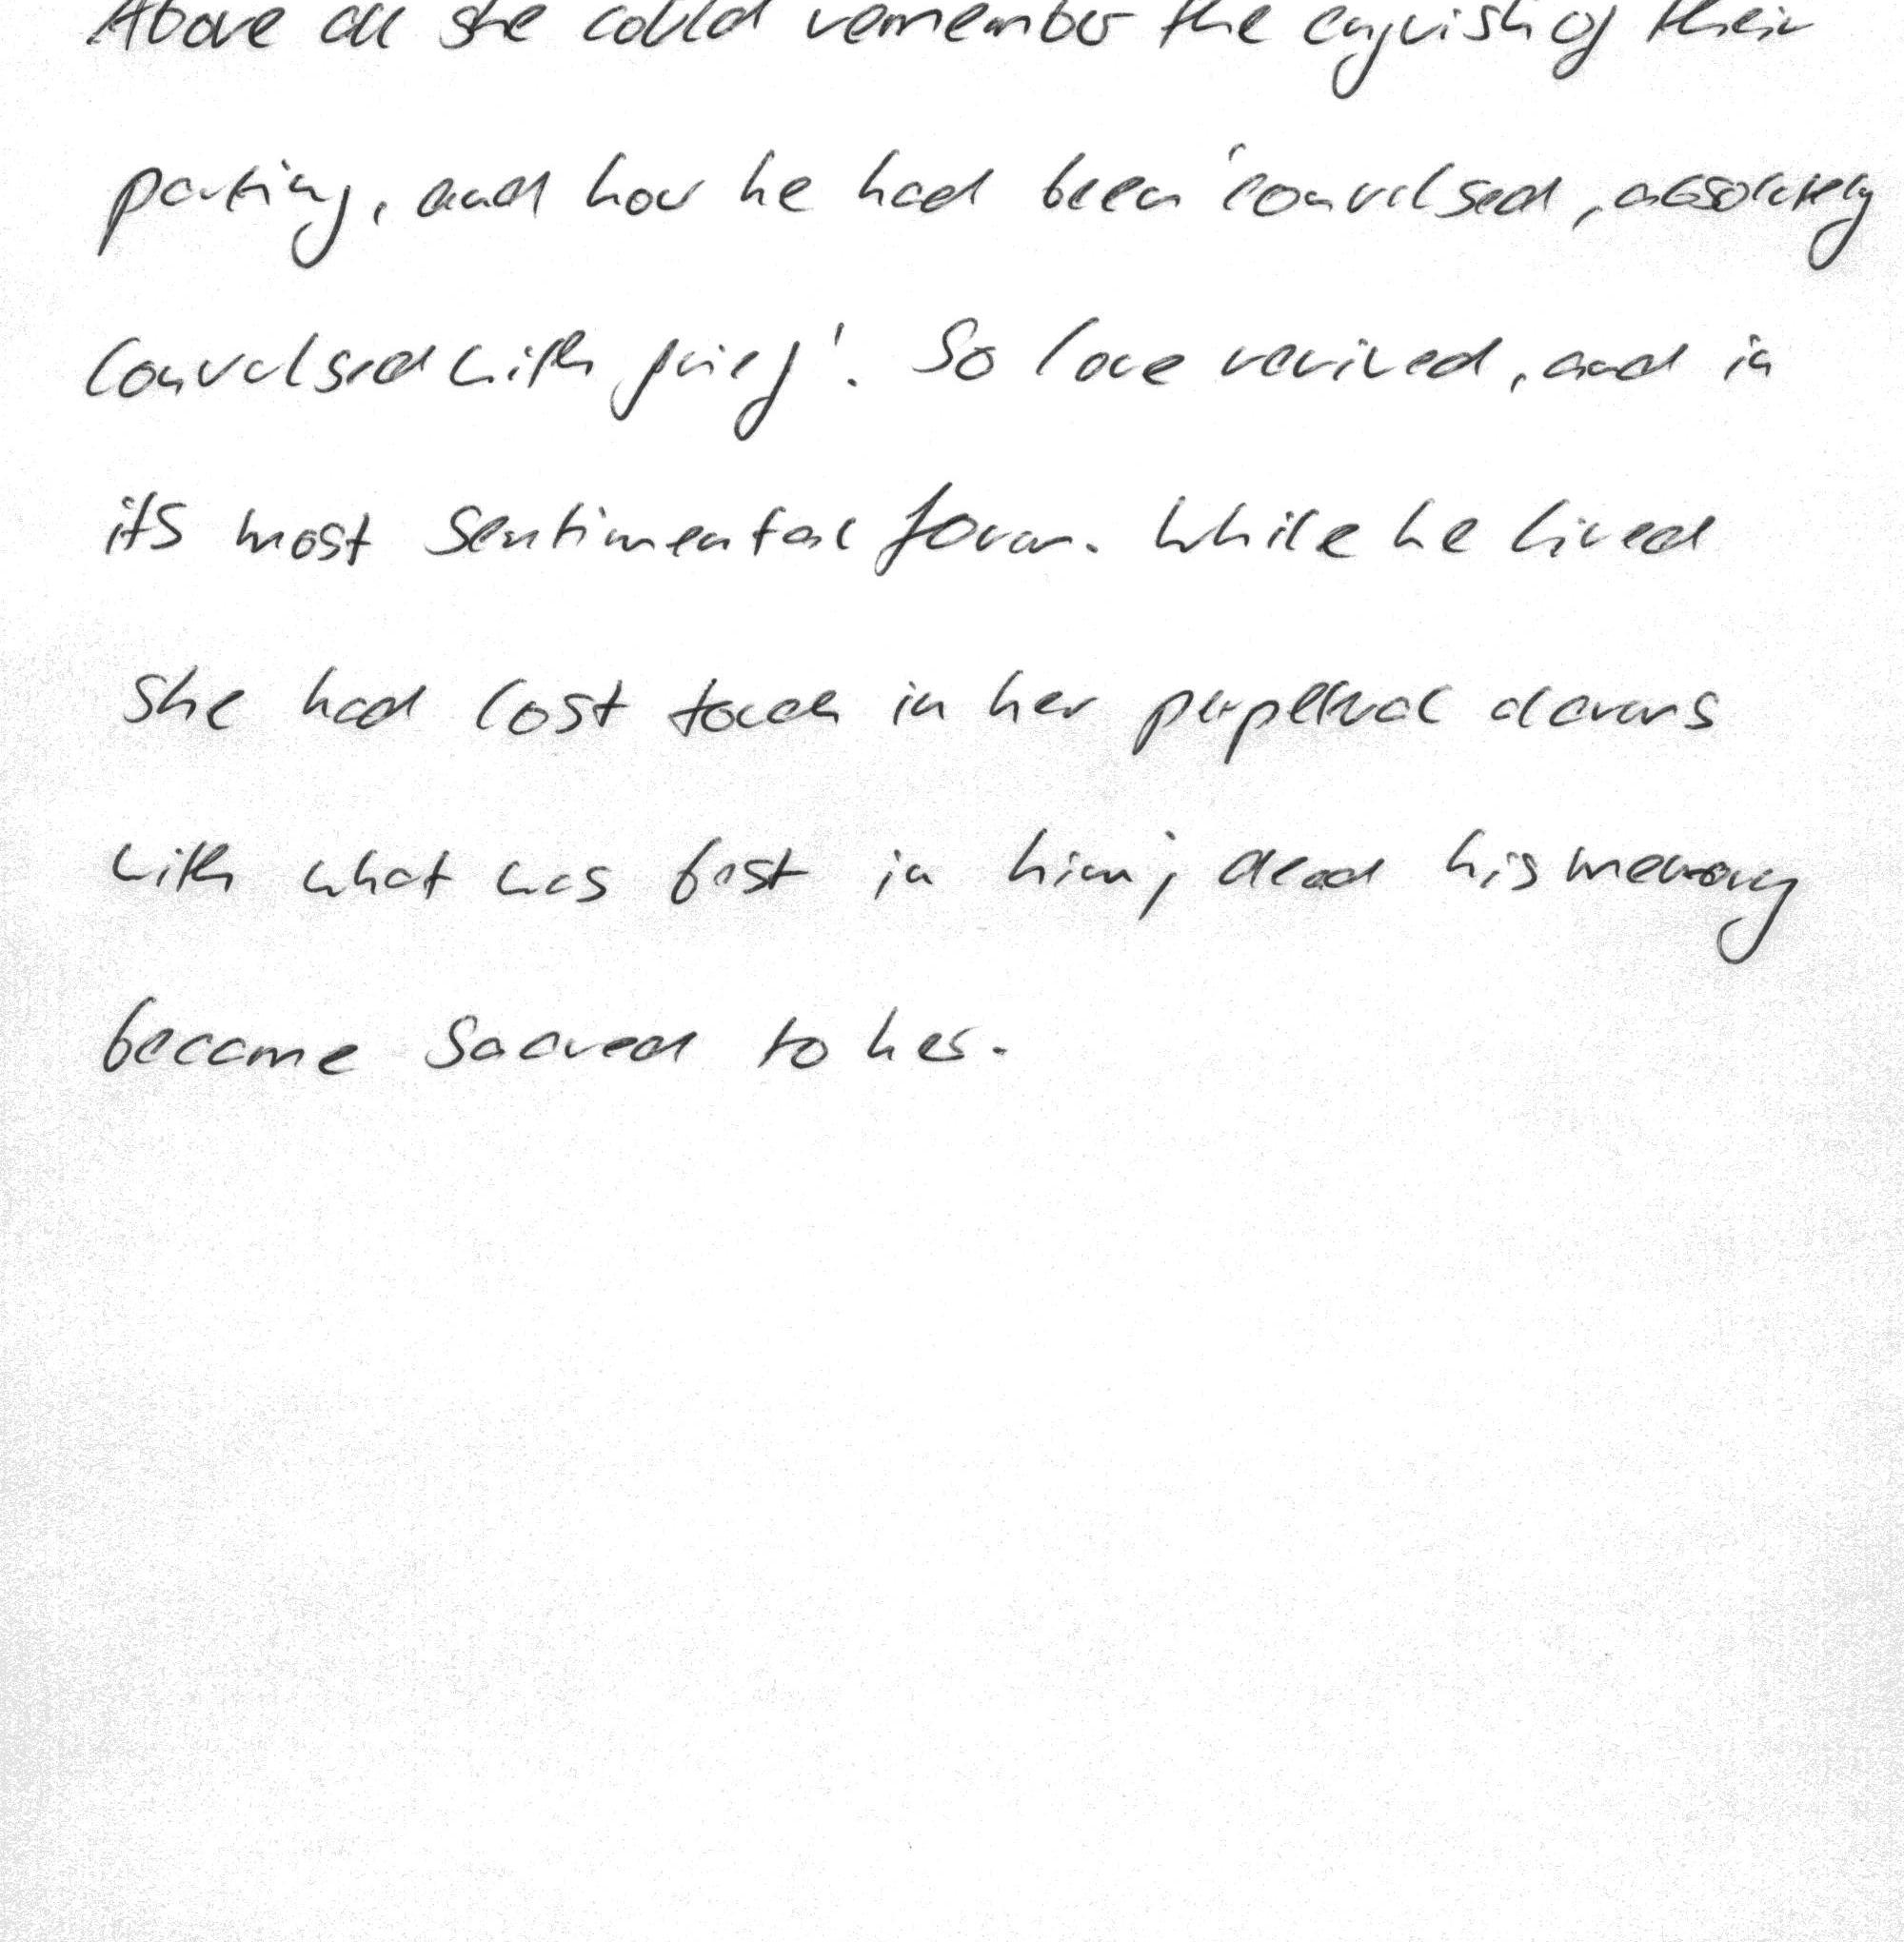 Above all she could remember the anguish of their
parting, and how he had been 'convulsed, absolutely
convulsed with grief'. So love revived, and in
its most sentimental form. While he lived
she had lost touch in her perpetual alarms
with what was best in him; dead his memory
became sacred to her.